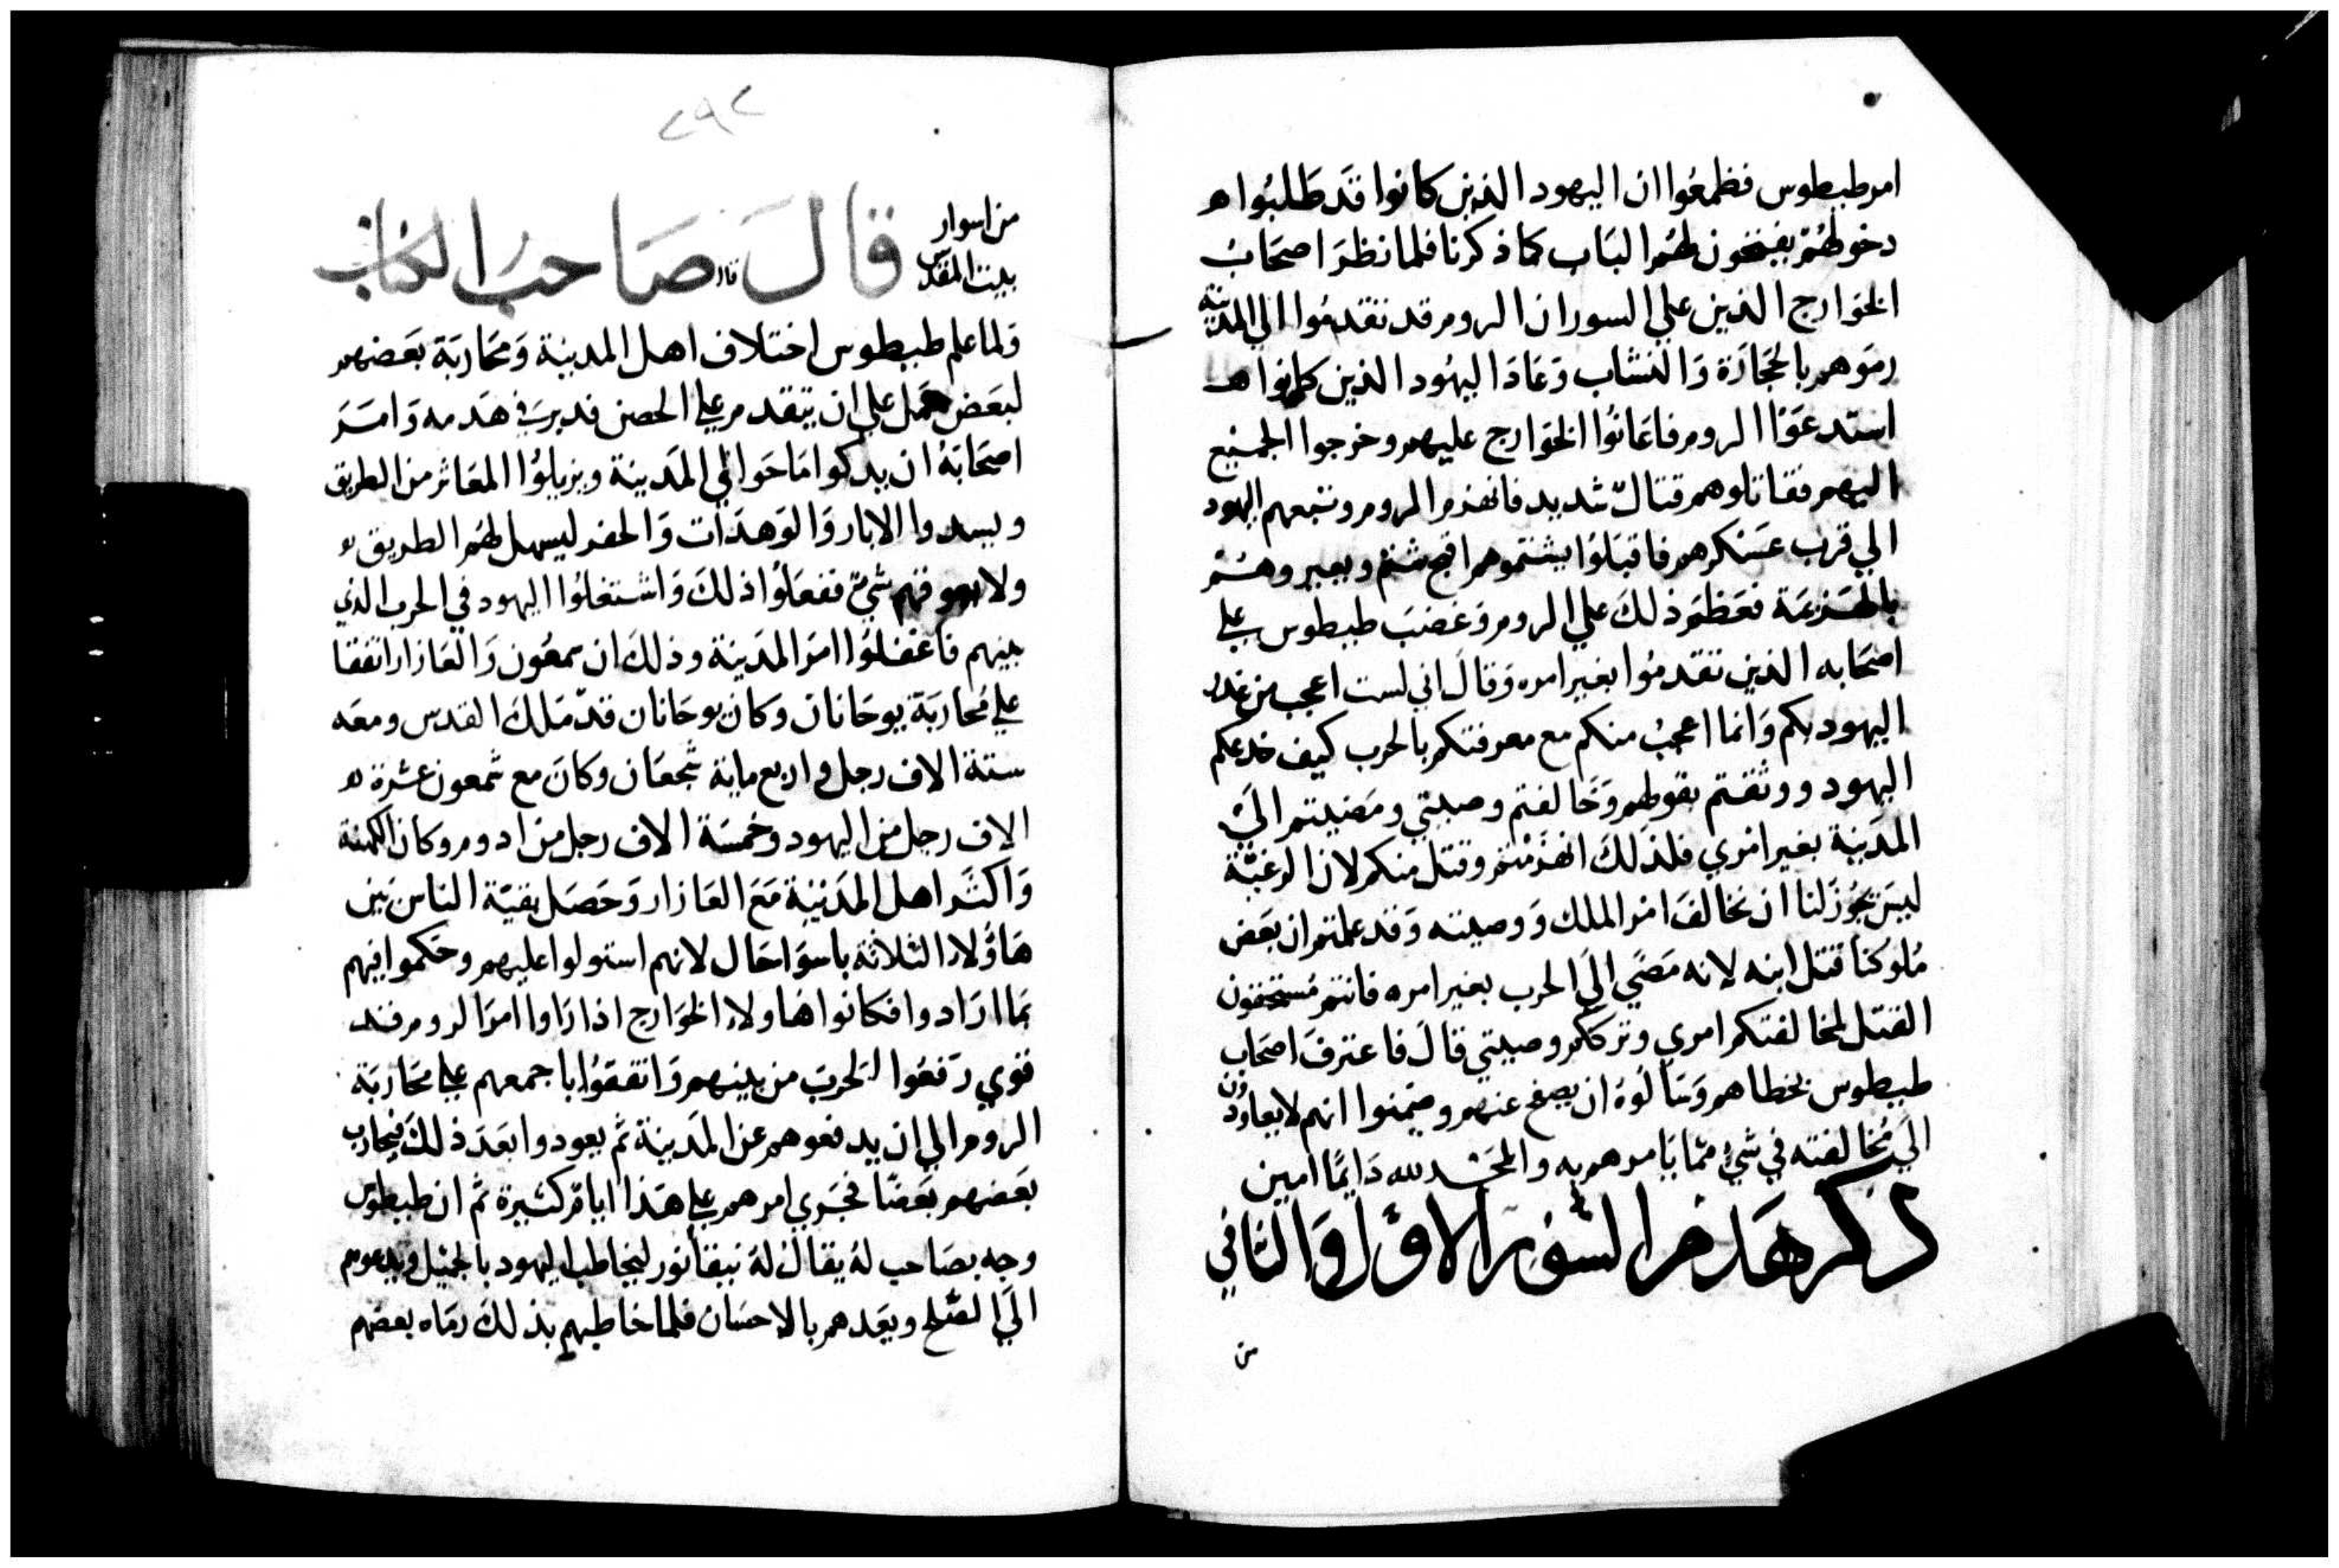 امر طيطوس فطمعوا ان اليهود الذين كانوا قد طلبوا
دخولهم يفتحون لهم الباب كما ذكرنا فلما نظر اصحاب
الخوارج الذين علي السور ان الروم قد تقدموا الي المدينة
رموهم بالحجارة والنشاب وعاد اليهود الذين كانوا
استدعوا الروم فاعانوا الخوارج عليهم وخرجوا الجميع
اليهم فقاتلوهم قتال شديد فانهزم الروم وتبعهم اليهود
الي قرب عسكرهم فاقبلوا يشتموهم اقبح شتم ويعيروهم
بالهزيمة فعظم ذلك علي الروم وغضب طيطوس علي
اصحابه الذين تقدموا بغير امره وقال اني لست اعجب من غدر
اليهود بكم وانما اعجب منكم مع معرفتكم بالحرب كيف خدعكم
اليهود ووثقتم بقولهم وخالفتم وصيتي ومضيتم الي
المدينة بغير امري فلذلك انهزمتم وقتل منكم لان الرعية
ليس يجوز لنا ان نخالف امر الملك ووصيته وقد علمتم ان بعض
ملوكنا قتل ابنه لانه مضي الي الحرب بغير امره فانتم مستحقون
القتل لمخالفتكم امري وترككم وصيتي قال فاعترف اصحاب
طيطوس بخطاهم وسالوه ان يصفح عنهم وضمنوا انهم لا يعاودون
الي مخالفته في شي مما يامرهم به والمجد لله دايما امين
ذكر هدم السور الاول والثاني
من
٢٩٢
من اسوار
بيت المقدس
قال صاحب الكتاب
قال
ولما علم طيطوس اختلاف اهل المدينة ومحاربة بعضهم
لبعض عمل علي ان يتقدم علي الحصن فدبر في هدمه وامر
اصحابه ان يدكوا ما حوالي المدينة ويزيلوا المعاثر من الطريق
ويسدوا الابار والوهدات والحفر ليسهل لهم الطريق
ولا يعوقهم شي ففعلوا ذلك واشتغلوا اليهود في الحرب الذي
بينهم فاغفلوا امر المدينة وذلك ان سمعون والعازار اتفقا
علي محاربة يوحانان وكان يوحانان قد ملك القدس ومعه
ستة الاف رجل واربع ماية شجعان وكان مع شمعون عشرة
الاف رجل من اليهود وخمسة الاف رجل من ادوم وكان الكهنة
واكثر اهل المدينة مع العازار وحصل بقية الناس بين
هاؤلاء الثلاثة باسوا حال لانهم استولوا عليهم وحكموا فيهم
بما ارادوا فكانوا هاولاء الخوارج اذا راوا امر الروم قد
قوي رفعوا الحرب من بينهم واتفقوا باجمعهم علي محاربة
الروم الي ان يدفعوهم عن المدينة ثم يعودوا بعد ذلك فيحارب
بعضهم بعضا فجري امرهم علي هذا اياما كثيرة ثم ان طيطوس
وجه بصاحب له يقال له نيقانور ليخاطب اليهود بالجميل ويدعوهم
الي الصلح ويعدهم بالاحسان فلما خاطبهم بذلك رماه بعضهم